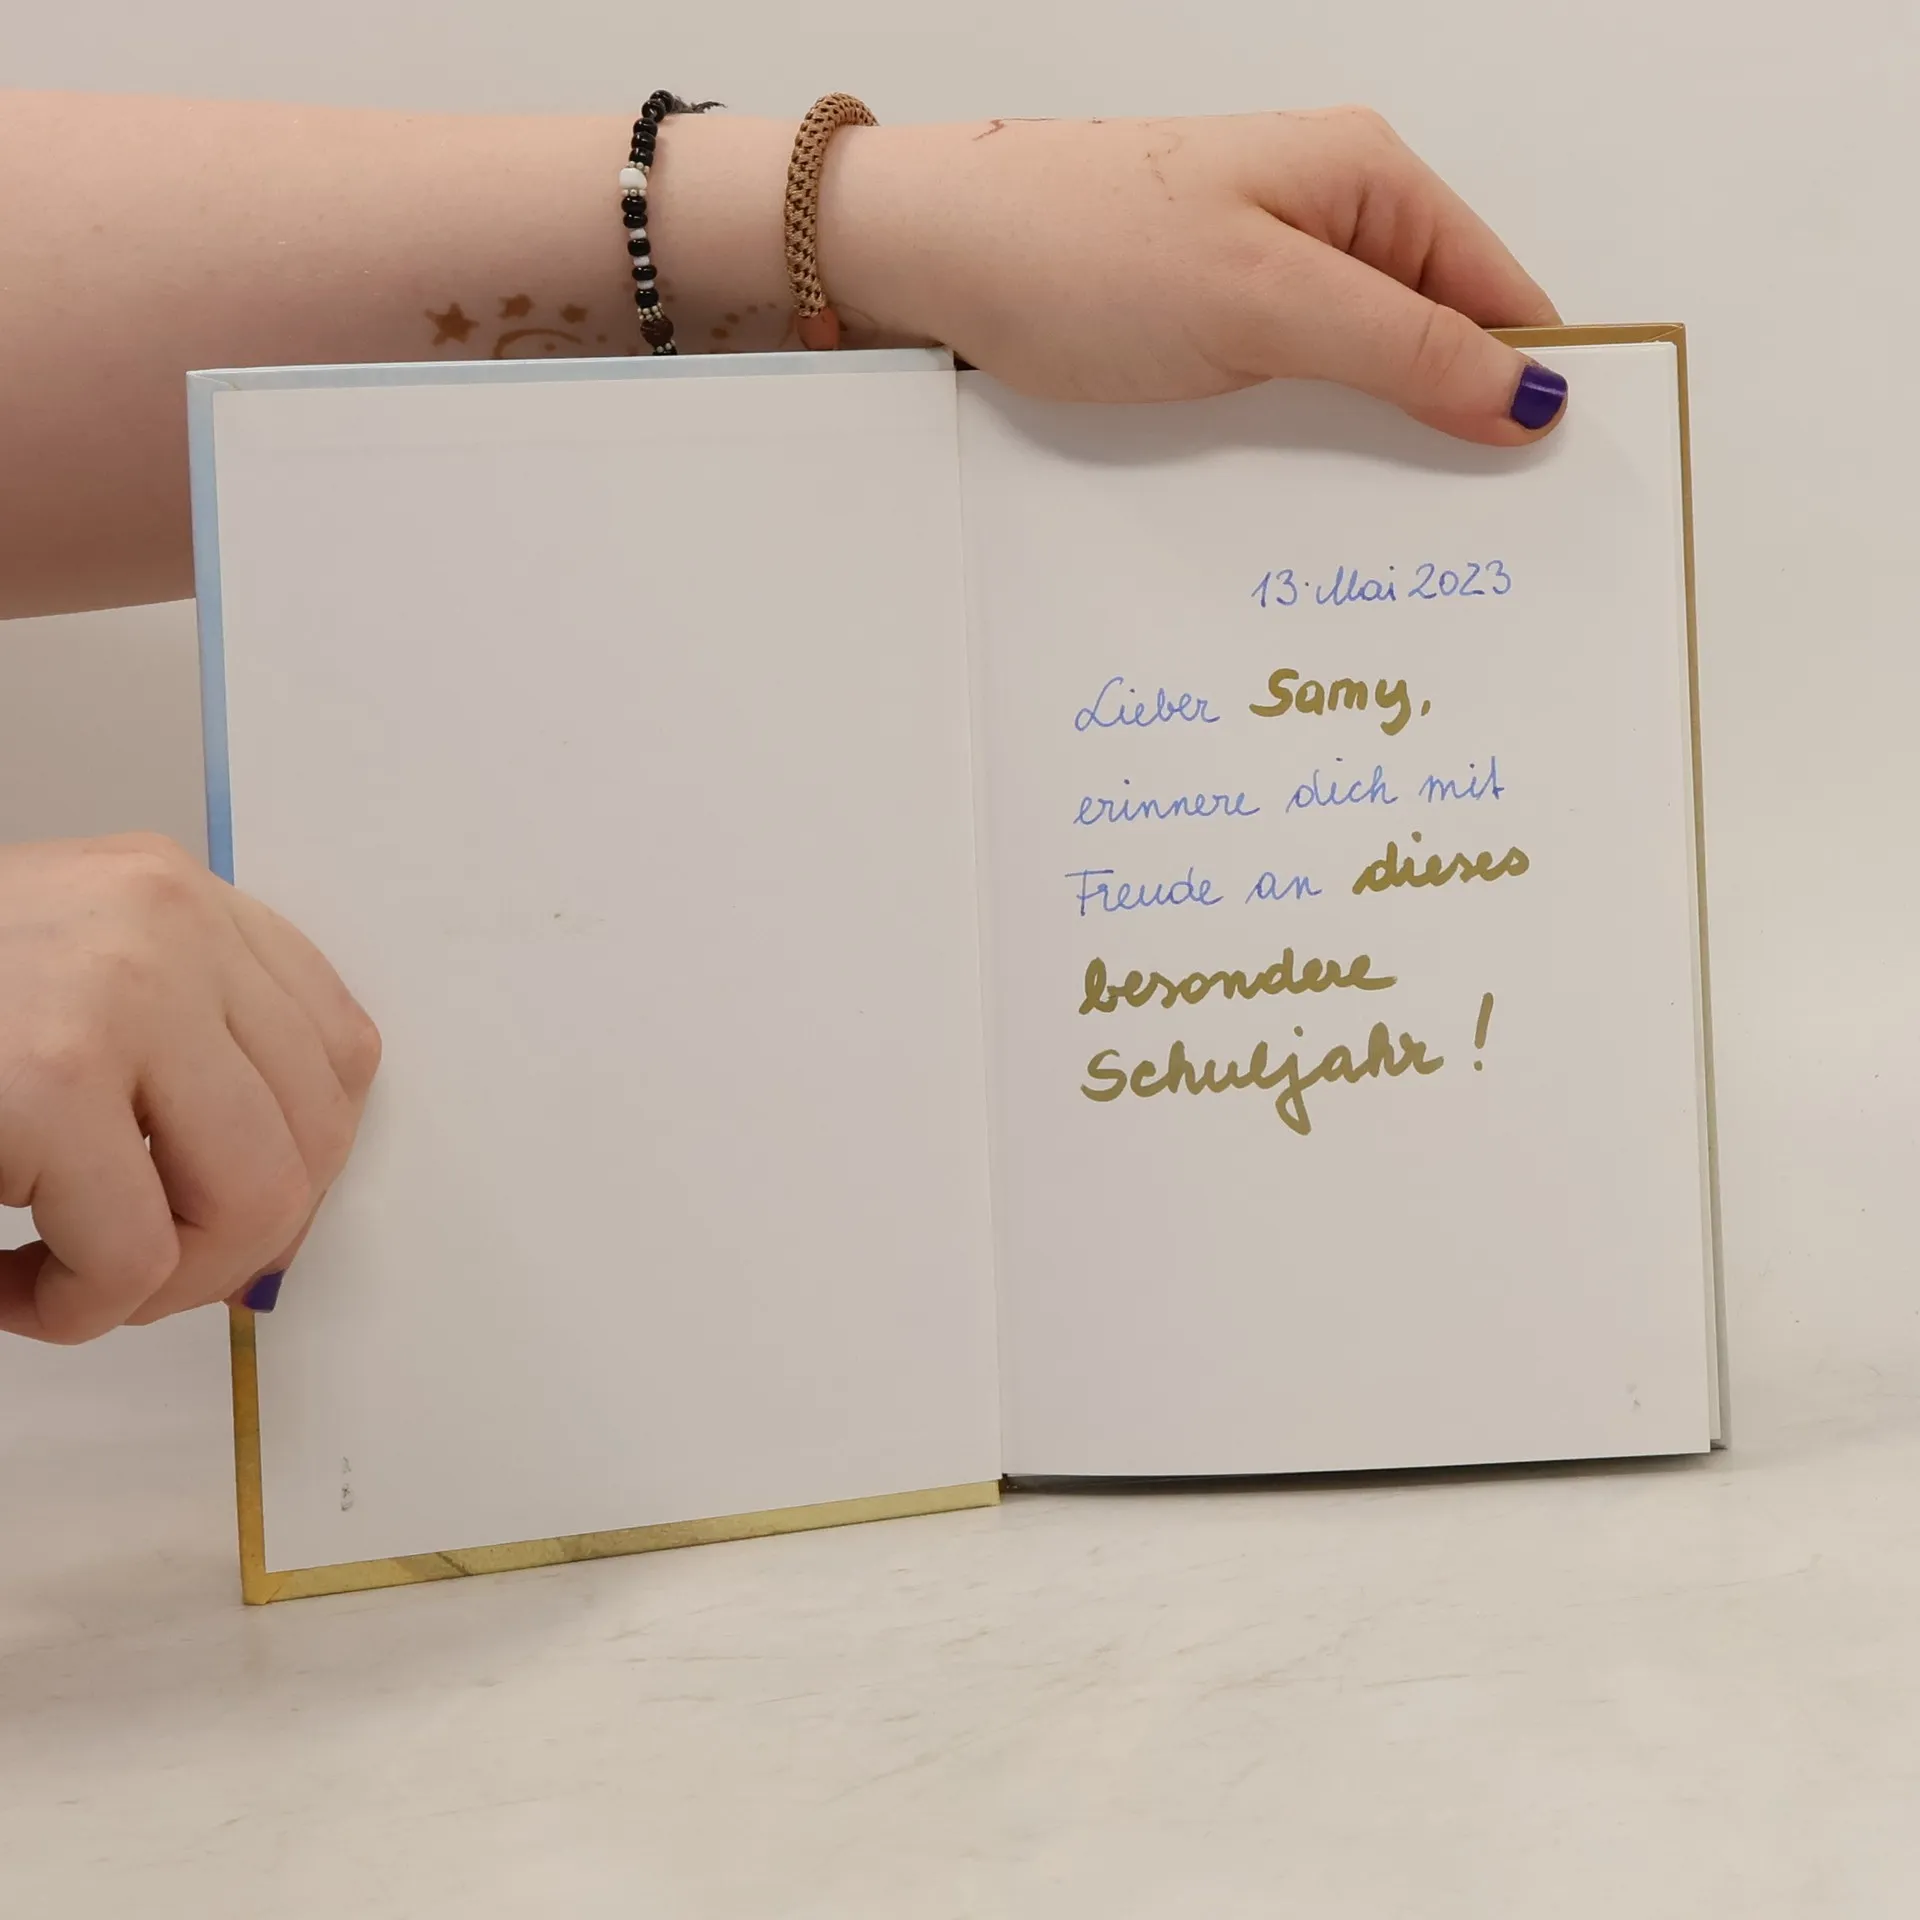 13. Mai 2023
Lieber Samy,
erinnere dich mit
Freude an dieses
besondere
Schuljahr!